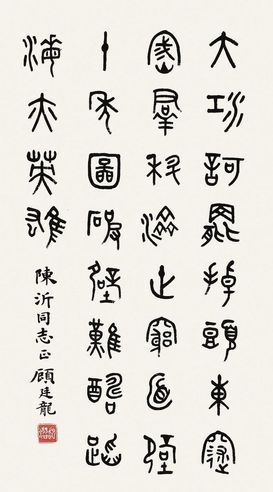 大江訶罷掉頭東邃
密群科濟世窮面壁
十年圖破壁難酬蹈
海亦英雄
陳沂同志正 顧廷龍